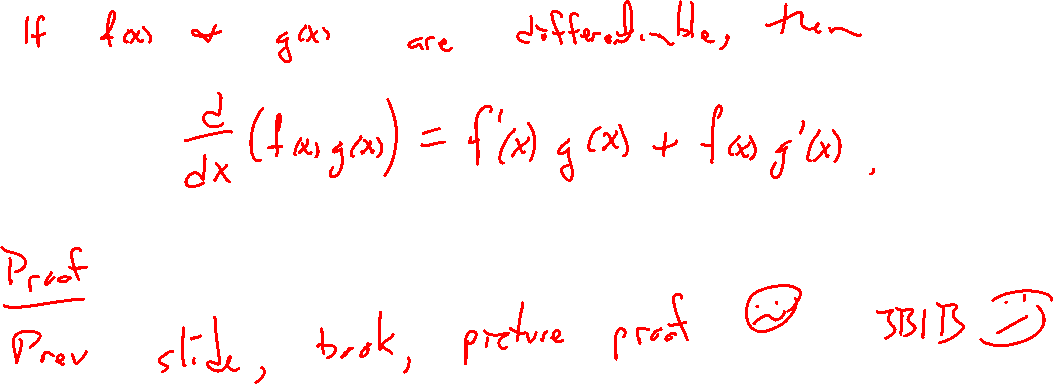 If f(x) & g(x) are differentiable, then
d/dx (f(x) g(x)) = f'(x) g(x) + f(x) g'(x).
Proof
Prev slide, book, picture proof 3B1B